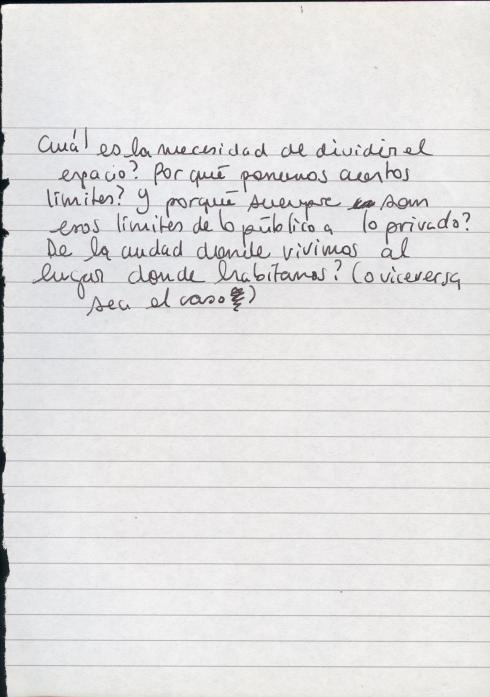 Cuál es la necesidad de dividir el
espacio? Por qué ponemos ciertos
límites? Y porqué siempre son
esos límites de lo público a lo privado?
De la ciudad donde vivimos al
lugar donde habitamos? (o viceversa
sea el caso)